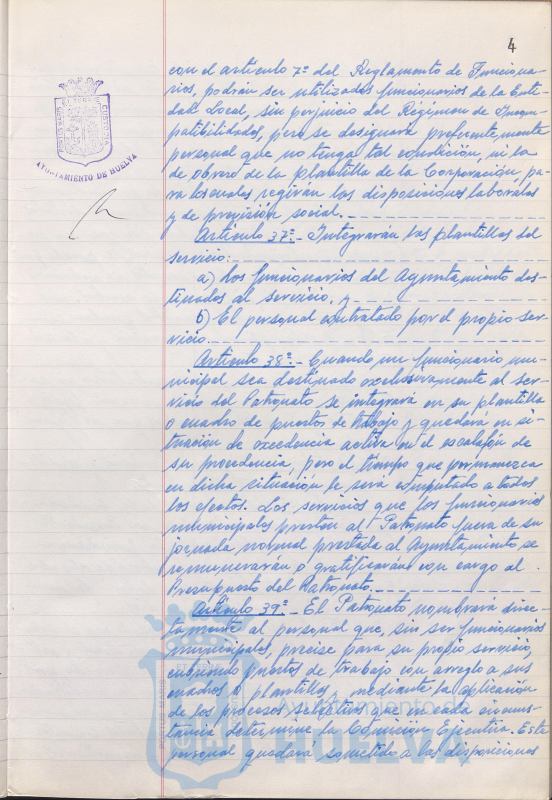 4
con el artículo 7º del Reglamento de Funciona-
rios, podrán ser utilizados funcionarios de la Enti-
dad Local, sin perjuicio del Régimen de Incom-
patibilidades, pero se designará preferentemente
personal que no tenga tal condición, ni la
de obrero de la plantilla de la Corporación, pa-
ra los cuales regirán las disposiciones laborales
y de previsión social.
Artículo 37º.- Integrarán las plantillas del
servicio:
a) Los funcionarios del Ayuntamiento des-
tinados al servicio, y
b) El personal contratado por el propio ser-
vicio.
Artículo 38º.- Cuando un funcionario mu-
nicipal sea destinado exclusivamente al ser-
vicio del Patronato se integrará en su plantilla
o cuadro de puestos de trabajo y quedará en si-
tuación de excedencia activa en el escalafón de
su procedencia, pero el tiempo que permanezca
en dicha situación le será computado a todos
los efectos. Los servicios que los funcionarios
municipales presten al Patronato fuera de su
jornada normal prestada al Ayuntamiento se
remunerarán o gratificarán con cargo al
Presupuesto del Patronato.
Artículo 39º.- El Patronato nombrará direc-
tamente al personal que, sin ser funcionarios
municipales, precise para su propio servicio,
cubriendo puestos de trabajo con arreglo a sus
cuadros o plantillas, mediante la aplicación
de los procesos selectivos que en cada circuns-
tancia determine la Comisión Ejecutiva. Este
personal quedará sometido a las disposiciones
PORTUS MARIS ET TERRAE CUSTODIA
AYUNTAMIENTO DE HUELVA
Ayuntamiento
HUELVA